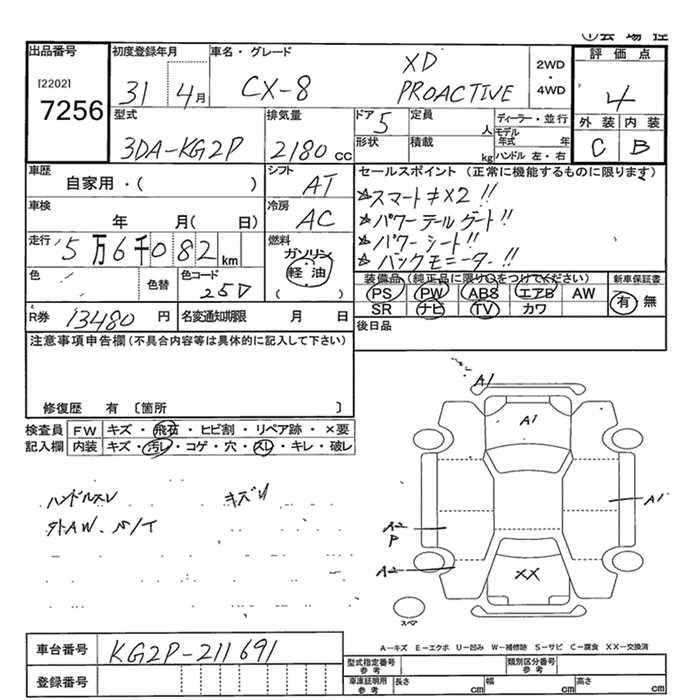 ①会場控
出品番号 初度登録年月 車名・グレード 評価点
[2202] 7256
31 4月 CX-8 XD PROACTIVE 2WD・4WD 4
型式 排気量 ドア 定員 ディーラー・並行 外装 内装
3DA-KG2P 2180cc 5 人 モデル年式 年 C B
形状 積載 kg ハンドル 左・右
車歴 シフト セールスポイント (正常に機能するものに限ります)
自家用・( ) AT ☆スマートキ×2!!
車検 冷房 ☆パワーテールゲート!!
年 月( 日) AC ☆パワーシート!!
走行 燃料 ☆バックモニター!!
5万6千082km ガソリン
軽・油
( )
色 色替 色コード 25D
装備品 (純正品に限り○をつけてください) 新車保証書
PS PW ABS エアB AW 有 無
SR ナビ TV カワ
R券 13480円 名変通知期限 月 日
後日品
注意事項申告欄(不具合内容等は具体的に記入して下さい)
修復歴 有 〔箇所 〕
検査員 FW キズ・飛石・ヒビ割・リペア跡・×要
記入欄 内装 キズ・汚レ・コゲ・穴・スレ・キレ・破レ
ハンドルスレ キズリ
外AW、S/T
A1
A1
A1
A2
P
A2
XX
スペア
A-キズ E-エクボ U-凹み W-補修跡 S-サビ C-腐食 XX-交換済
車台番号 KG2P-211691
登録番号
型式指定番号 参考 類別区分番号 参考
車庫証明用 参考 長さ cm 幅 cm 高さ cm